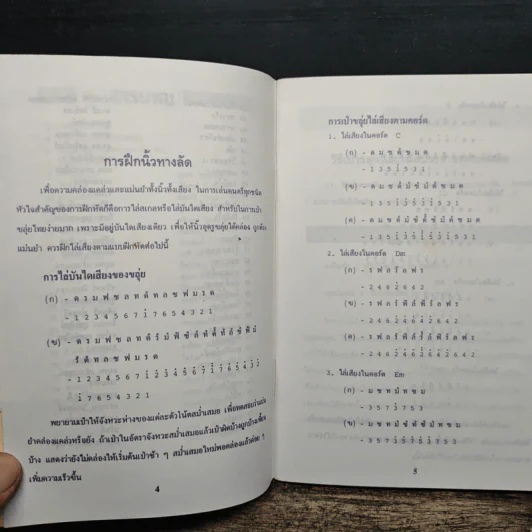 การฝึกนิ้วทางลัด
เพื่อความคล่องแคล่วและแม่นยำทั้งนิ้วทั้งเสียง ในการเล่นดนตรีทุกชนิด
หัวใจสำคัญของการฝึกหัดก็คือการไล่สเกลหรือไล่บันไดเสียง สำหรับในการเป่า
ขลุ่ยไทยง่ายมาก เพราะมีอยู่บันไดเสียงเดียว เพื่อให้นิ้วอุดรูขลุ่ยได้คล่อง ถูกต้อง
แม่นยำ ควรฝึกไล่เสียงตามแบบฝึกหัดต่อไปนี้
การไล่บันไดเสียงของขลุ่ย
(ก) - ด ร ม ฟ ซ ล ท ดํ ท ล ซ ฟ ม ร ด
- 1 2 3 4 5 6 7 1̇ 7 6 5 4 3 2 1
(ข) - ด ร ม ฟ ซ ล ท ดํ รํ มํ ฟํ ซํ ลํ ทํ
รํ ดํ ท ล ซ ฟ ม ร ด
- 1 2 3 4 5 6 7 1̇ 2̇ 3̇ 4̇ 5̇ 6̇ 7̇
1̇ 7 6 5 4 3 2 1
พยายามเป่าให้จังหวะห่างของแต่ละตัวโน้ตสม่ำเสมอ เพื่อทดสอบว่าแม่น
ยำคล่องแคล่วหรือยัง ถ้าเป่าในอัตราจังหวะสม่ำเสมอแล้วเป่าผิดบ้างถูกบ้างเพี้ยน
บ้าง แสดงว่ายังไม่คล่องให้เริ่มต้นเป่าช้า ๆ สม่ำเสมอใหม่พอคล่องแล้วค่อย ๆ
เพิ่มความเร็วขึ้น
4
การเป่าขลุ่ยไล่เสียงตามคอร์ด
1. ไล่เสียงในคอร์ด C
(ก) - ด ม ซ ดํ ซ ม ด
- 1 3 5 1̇ 5 3 1
(ข) - ด ม ซ ดํ มํ ดํ ซ ม ด
- 1 3 5 1̇ 3̇ 1̇ 5 3 1
(ค) - ด ม ซ ดํ มํ ซํ มํ ดํ ซ ม ด
- 1 3 5 1̇ 3̇ 5̇ 3̇ 1̇ 5 3 1
2. ไล่เสียงในคอร์ด Dm
(ก) - ร ฟ ล รํ ล ฟ ร
- 2 4 6 2̇ 6 4 2
(ข) - ร ฟ ล รํ ฟํ รํ ล ฟ ร
- 2 4 6 2̇ 4̇ 2̇ 6 4 2
(ค) - ร ฟ ล รํ ฟํ ลํ ฟํ รํ ล ฟ ร
- 2 4 6 2̇ 4̇ 6̇ 4̇ 2̇ 6 4 2
3. ไล่เสียงในคอร์ด Em
(ก) - ม ซ ท มํ ท ซ ม
- 3 5 7 3̇ 7 5 3
(ข) - ม ซ ท มํ ซํ มํ ท ซ ม
- 3 5 7 3̇ 5̇ 3̇ 7 5 3
5